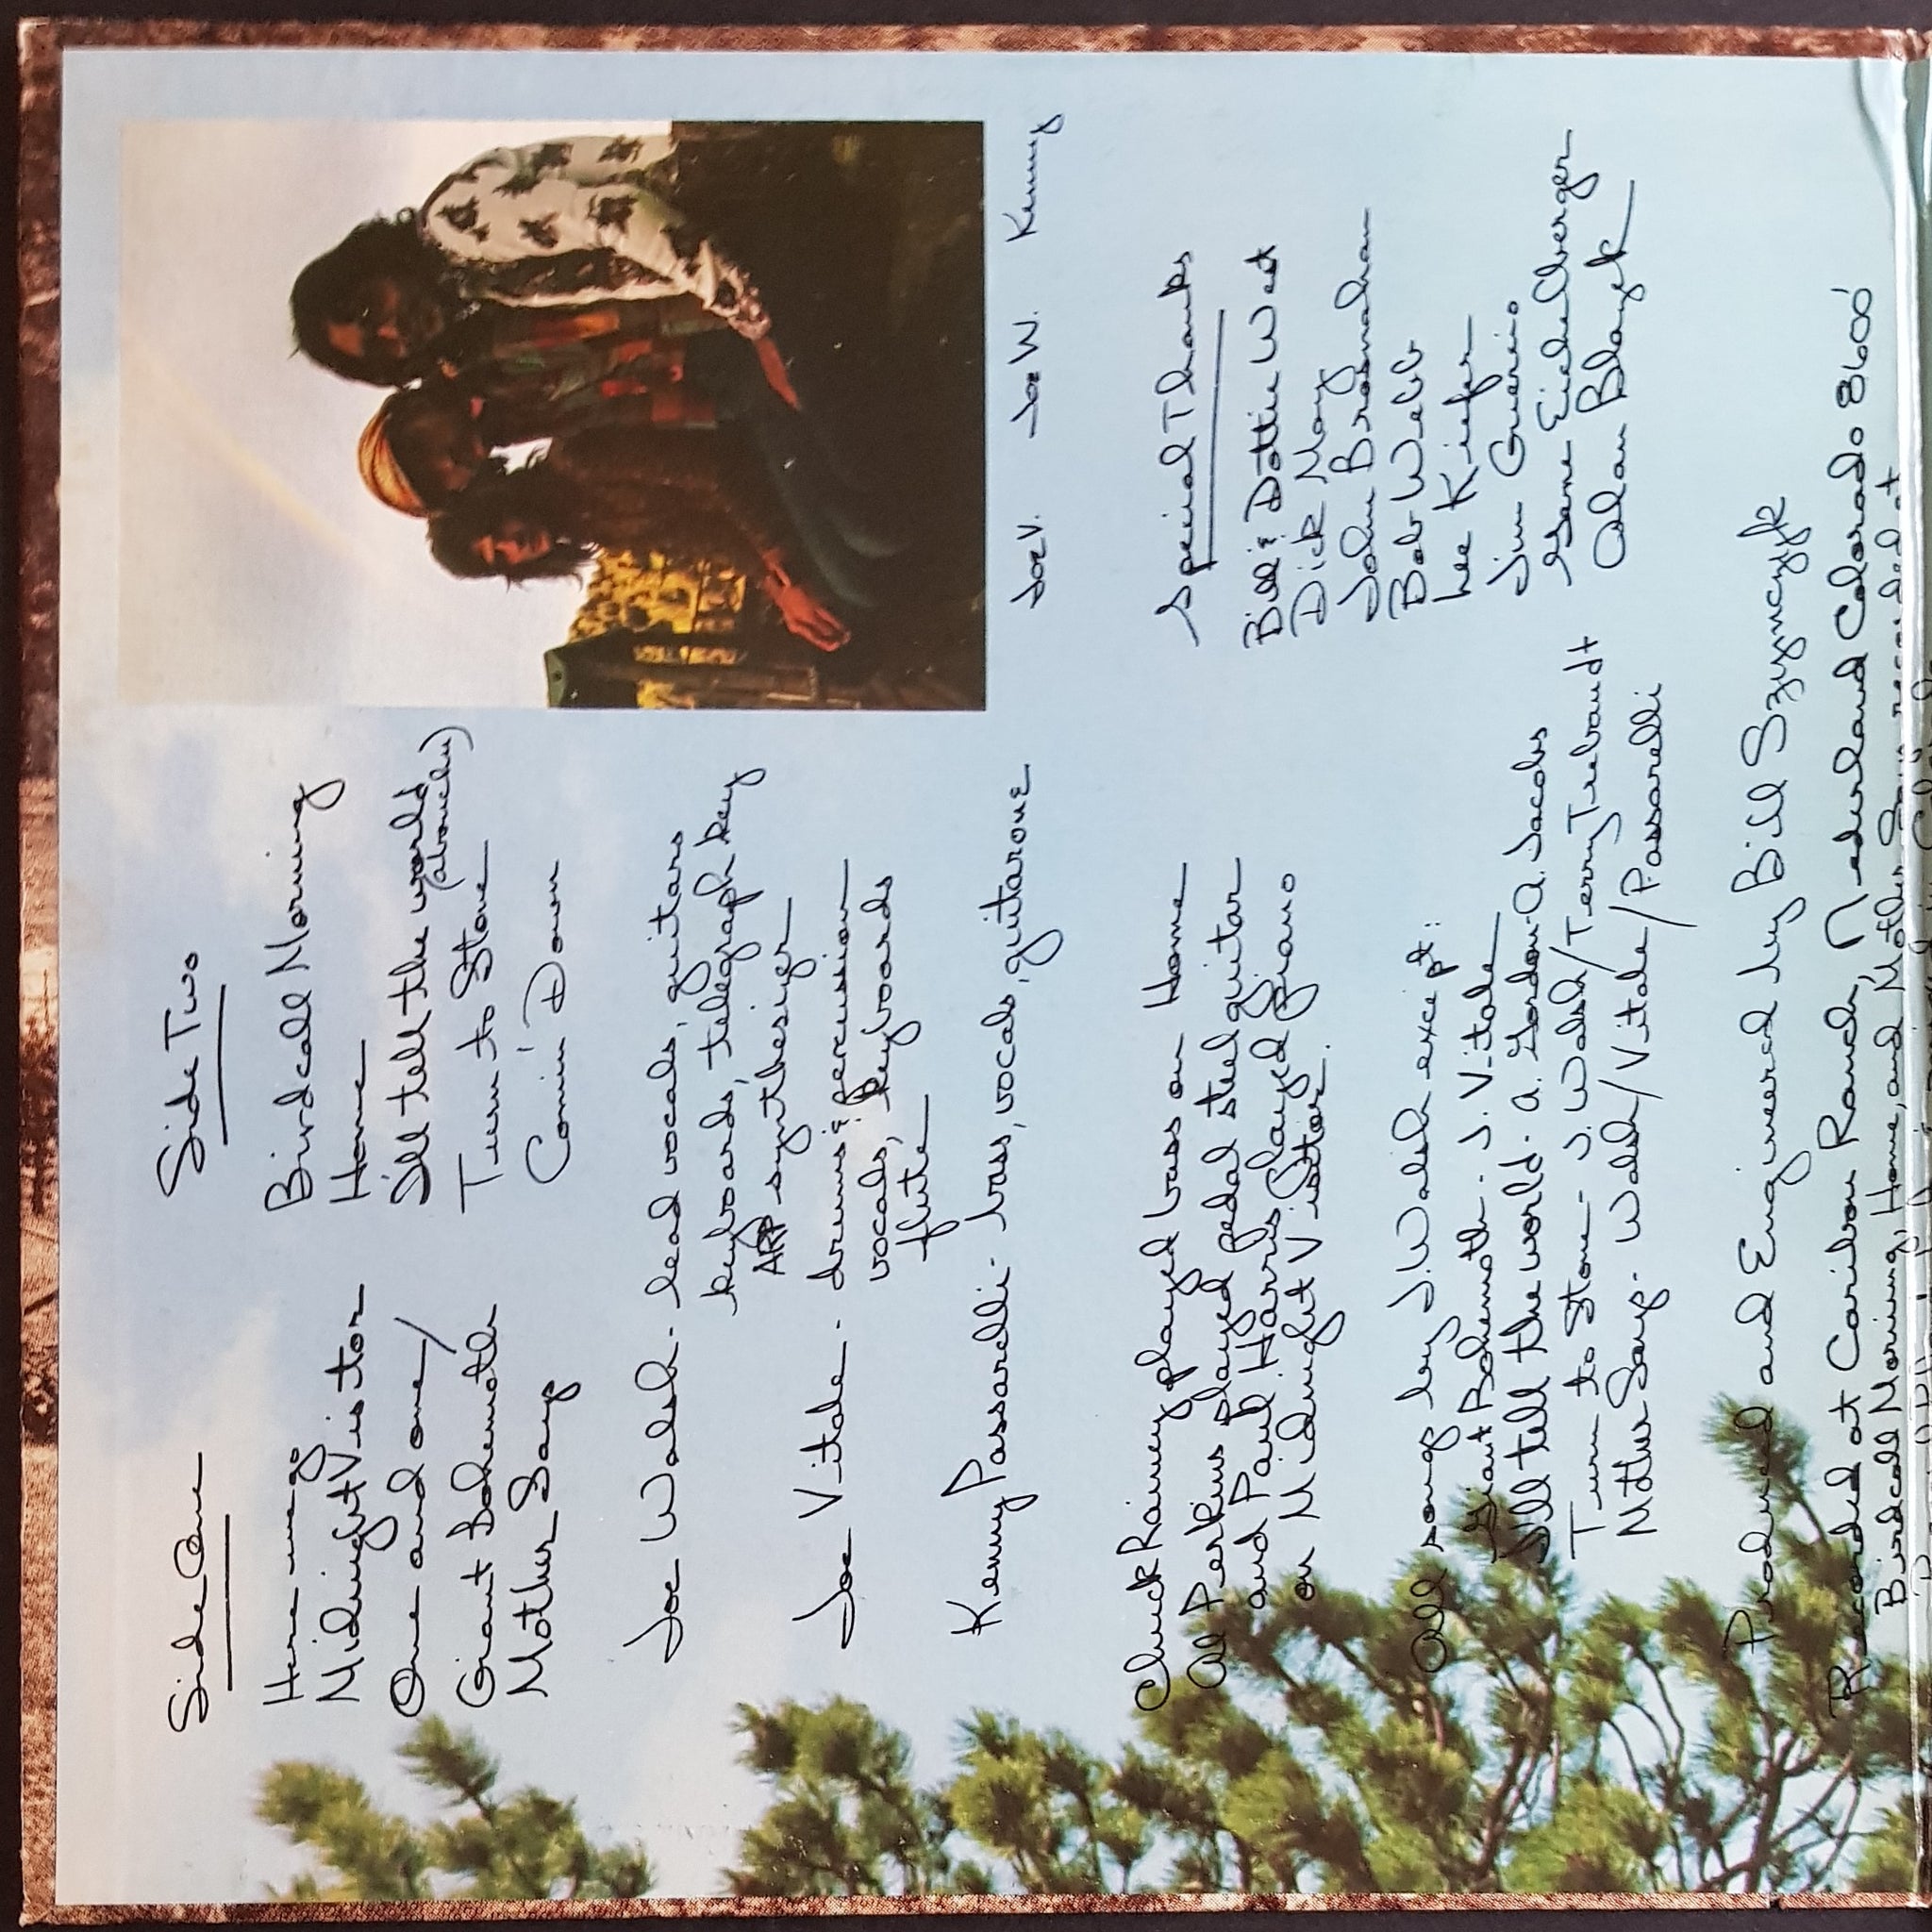 Side One
Here we go
Midnight Visitor
One and one/
Giant Bohemoth
Mother Says
Side Two
Birdcall Morning
Home
I'll tell the world
(aboutchu)
Turn to Stone
Comin' Down
Joe V. Joe W. Kenny
Joe Walsh - lead vocals, guitars
keyboards, telegraph key
ARP synthesizer
Joe Vitale - drums & percussion
vocals, keyboards
flute
Kenny Passarelli - bass, vocals, guitarone
Chuck Rainey played bass on Home
Al Perkins played pedal steel guitar
and Paul Harris played piano
on Midnight Visitor.
All songs by J. Walsh except:
Giant Bohemoth - J. Vitale
I'll tell the world - a. Gordon - a. Jacobs
Turn to Stone - J. Walsh/Terry Trebandt
Mother Says - Walsh/Vitale/Passarelli
Special Thanks
Bill & Dottie West
Dick May
John Brosnahan
Bob Webb
Lee Kiefer
Jim Guerico
Gene Eichelberger
Alan Blazek
Produced and Engineered by Bill Szymczyk
Recorded at Caribou Ranch, Nederland Colorado 8600'
Birdcall Morning, Home, and Mother Says recorded at